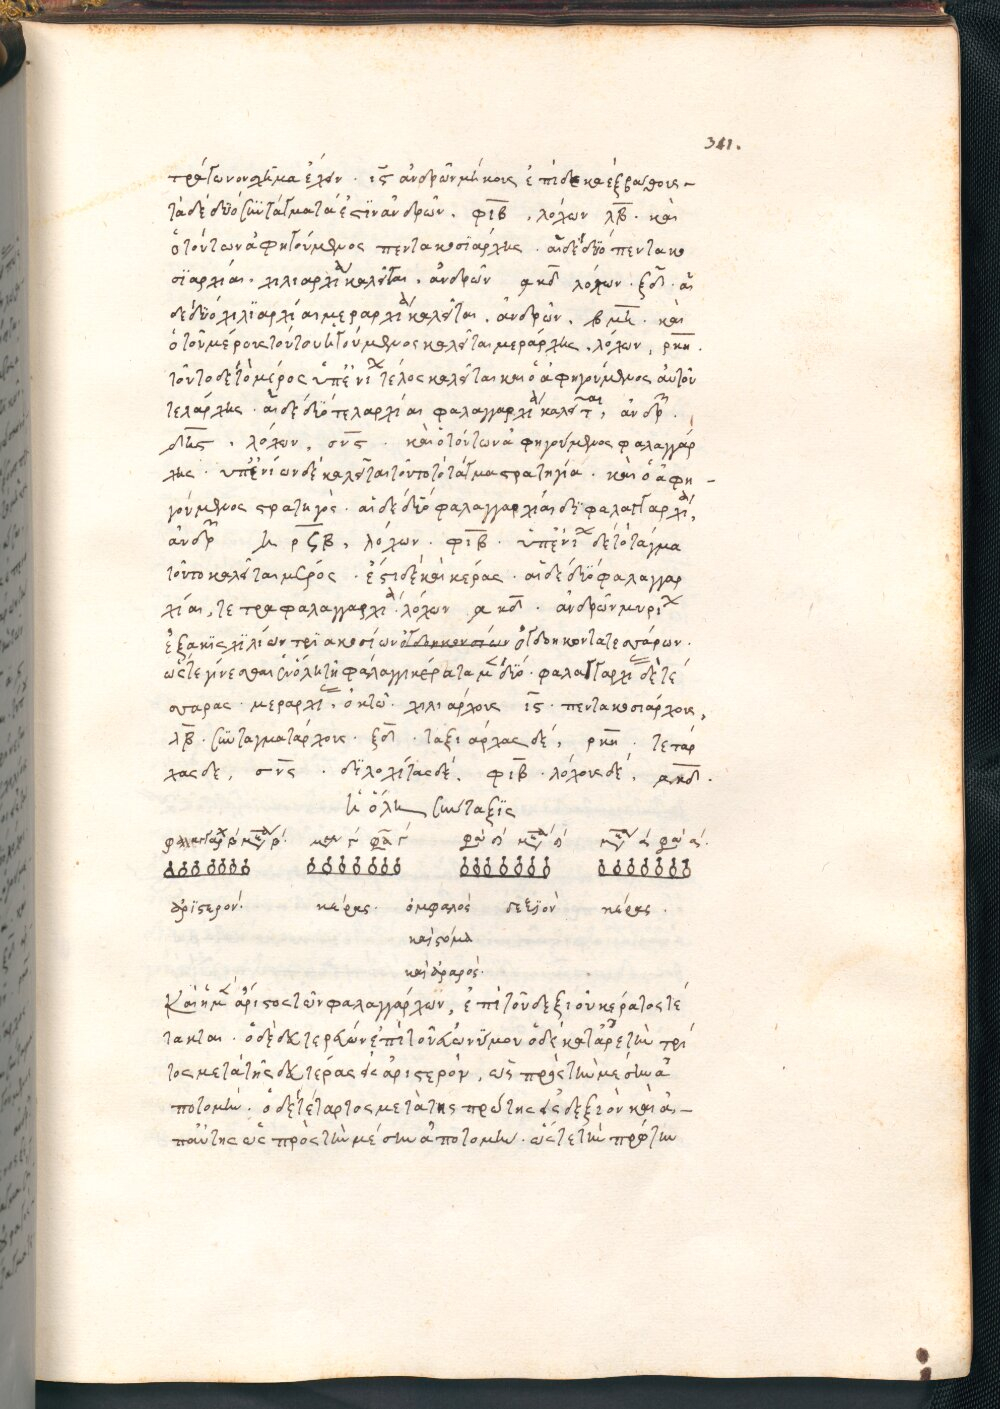 341.
τράγωνον σχῆμα ἔχον · ις ἀνδρῶν μήκους ἐπὶ δὲ καὶ ἓξ βάθους –
τὰ δὲ δύο συντάγματα ἐστὶν ἀνδρῶν · φιβ , λόχων λβ · καὶ
ὁ τούτων ἀφηγούμενος πεντακοσιάρχης · αἱ δὲ δύο πεντακο
σιαρχίαι · χιλιαρχία καλεῖται · ἀνδρῶν ͵ακδ λόχων · ξδ · αἱ
δὲ δύο χιλιαρχίαι μεραρχία καλεῖται . ἀνδρῶν . ͵βμη · καὶ
ὁ τοῦ μέρους τούτου ἡγούμενος καλεῖται μεράρχης . λόχων , ρκη .
τοῦτο δὲ τὸ μέρος ὑπ' ἐνίων τέλος καλεῖται καὶ ὁ ἀφηγούμενος αὐτοῦ
τελάρχης · αἱ δὲ δύο τελαρχίαι φαλαγγαρχία καλεῖται, ἀνδρῶν .
δϟς . λόχων , σνς · καὶ ὁ τούτων ἀφηγούμενος φαλαγγάρ
χης · ὑπ' ἐνίων δὲ καλεῖται τοῦτο τὸ τάγμα στρατηγία · καὶ ὁ ἀφη –
γούμενος στρατηγός · αἱ δὲ δύο φαλαγγαρχίαι διφαλαγγαρχία,
ἀνδρῶν η ρϟβ , λόχων · φιβ · ὑπ' ἐνίων δὲ τὸ τάγμα
τοῦτο καλεῖται μέρος · ἔστι δὲ καὶ κέρας · αἱ δὲ δύο διφαλαγγαρ
χίαι, τετραφαλαγγαρχία · λόχων ͵ακδ · ἀνδρῶν μυρίων
ἑξακισχιλίων τριακοσίων ὀγδοηκοντατεσσάρων ·
ὥστε γίνεσθαι ἐν ὅλῃ τῇ φάλαγγι κέρατα μὲν δύο · φαλαγγαρχίας δὲ τέ
σσαρας · μεραρχίας · ὀκτώ · χιλιάρχους ις · πεντακοσιάρχους,
λβ · συνταγματάρχους · ξδ · ταξιάρχας δέ , ρκη · τετράρ
χας δὲ , σνς · διλοχίτας δέ , φιβ · λόχους δέ , ͵ακδ ·
ἡ ὅλη σύνταξις
ἀριστερόν · κέρας · ὀμφαλός δεξιὸν κέρας ·
καὶ στόμα
καὶ ἀραρός ·
Καὶ ἡ μὲν ἄριστος τῶν φαλαγγαρχῶν , ἐπὶ τοῦ δεξιοῦ κέρατος τέ
τακται · ὁ δὲ δευτερεύων ἐπὶ τοῦ εὐωνύμου ὁ δὲ κατ' ἀρετὴν τρί
τος μετὰ τῆς δευτέρας ἐς ἀριστερόν , ὡς πρὸς τὴν μέσην ἀ
ποτομήν · ὁ δὲ τέταρτος μετὰ τῆς πρώτης ἐς δεξιὸν καὶ ἀ –
παύτης ὡς πρὸς τὴν μέσην ἀποτομήν · ὥστε τὴν πρώτην